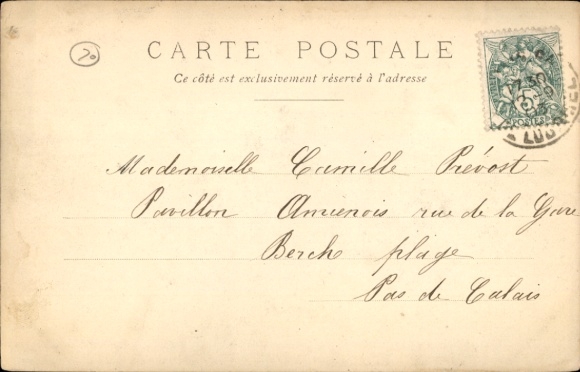 70
CARTE POSTALE
Ce côté est exclusivement réservé à l'adresse
5
POSTES
Mademoiselle Camille Prévost
Pavillon Amienois rue de la Gare
Berck plage
Pas de Calais